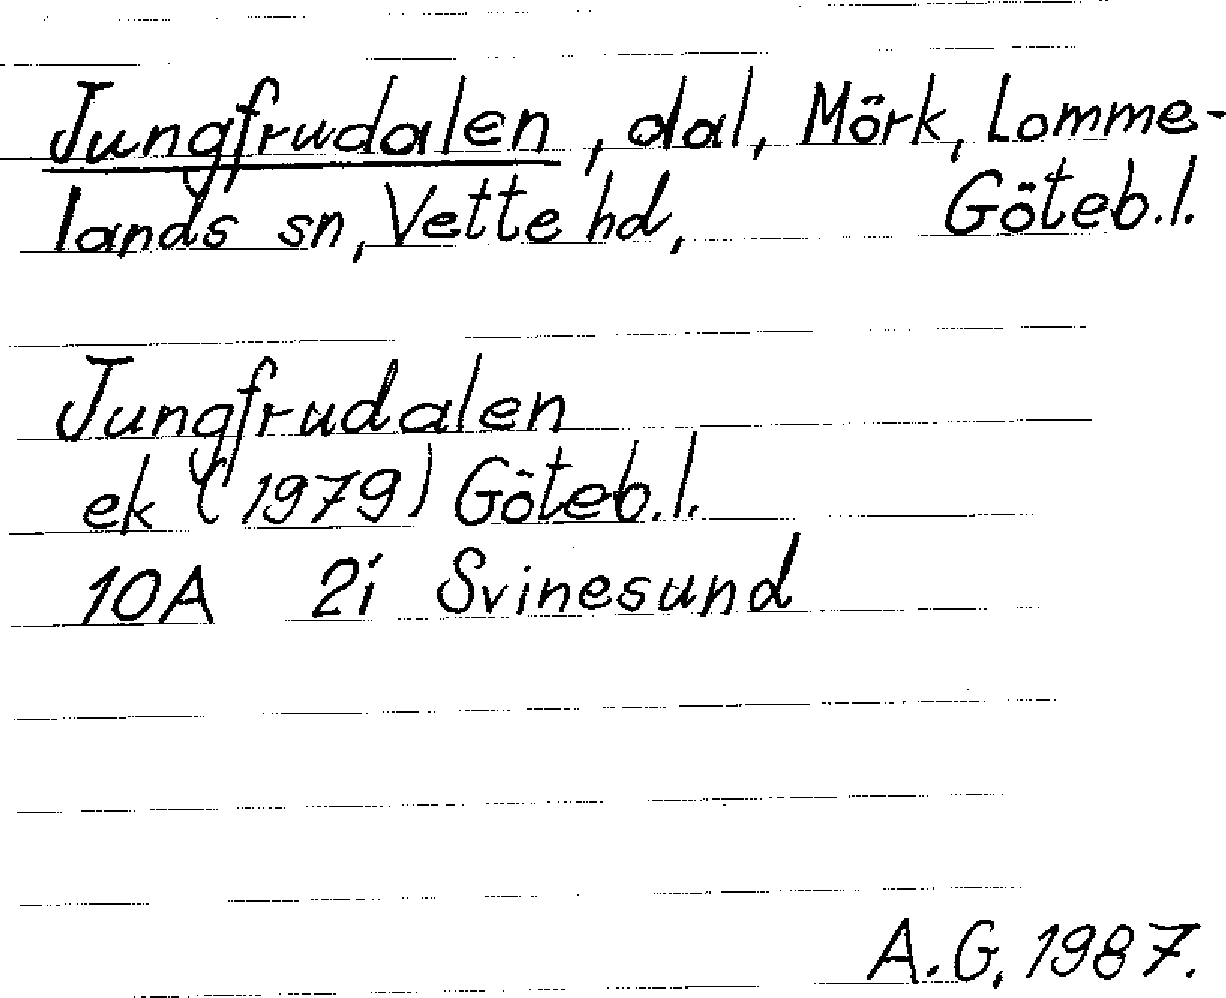 Jungfrudalen, dal, Mörk, Lomme-
lands sn, Vette hd, Göteb.l.
Jungfrudalen
ek (1979) Göteb.l.
10A 2i Svinesund
A.G. 1987.